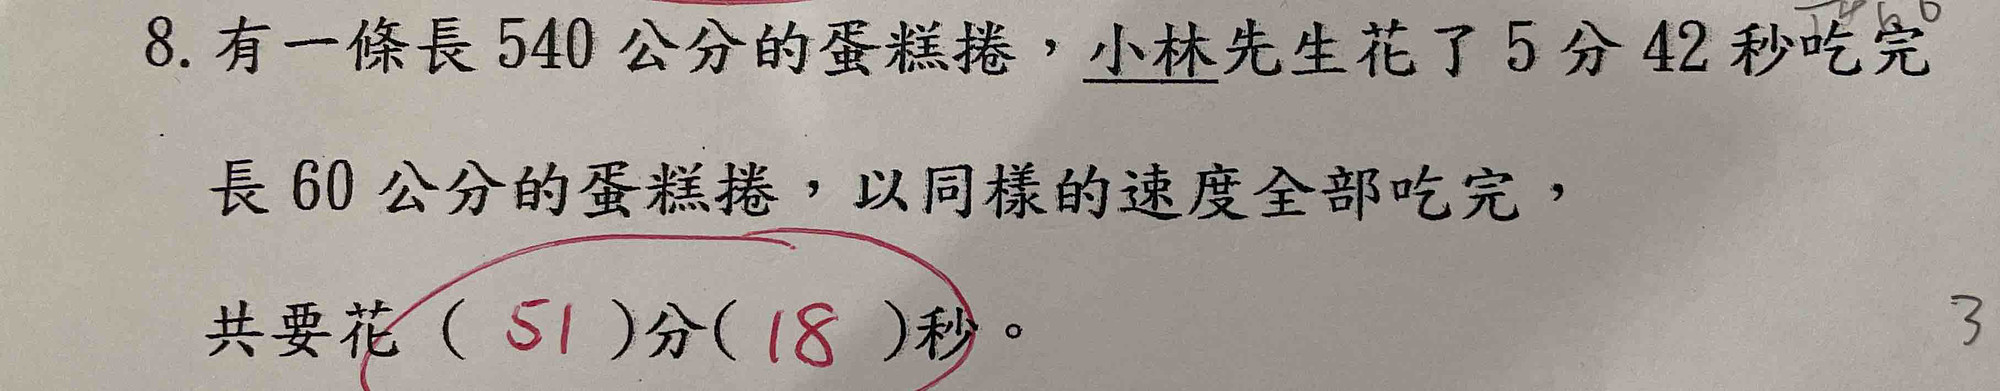 8. 有一條長 540 公分的蛋糕捲，小林先生花了 5 分 42 秒吃完
長 60 公分的蛋糕捲，以同樣的速度全部吃完，
共要花（ 51 ）分（ 18 ）秒。
3